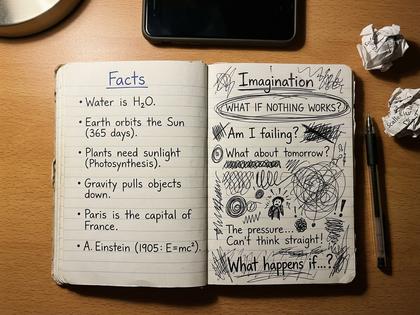 Facts
• Water is H₂O.
• Earth orbits the Sun
(365 days).
• Plants need sunlight
(Photosynthesis).
• Gravity pulls objects
down.
• Paris is the capital of
France.
• A. Einstein (1905: E=mc²).
Imagination
WHAT IF NOTHING WORKS?
Am I failing?
What about tomorrow?
The pressure...
Can't think straight!
What happens if...?